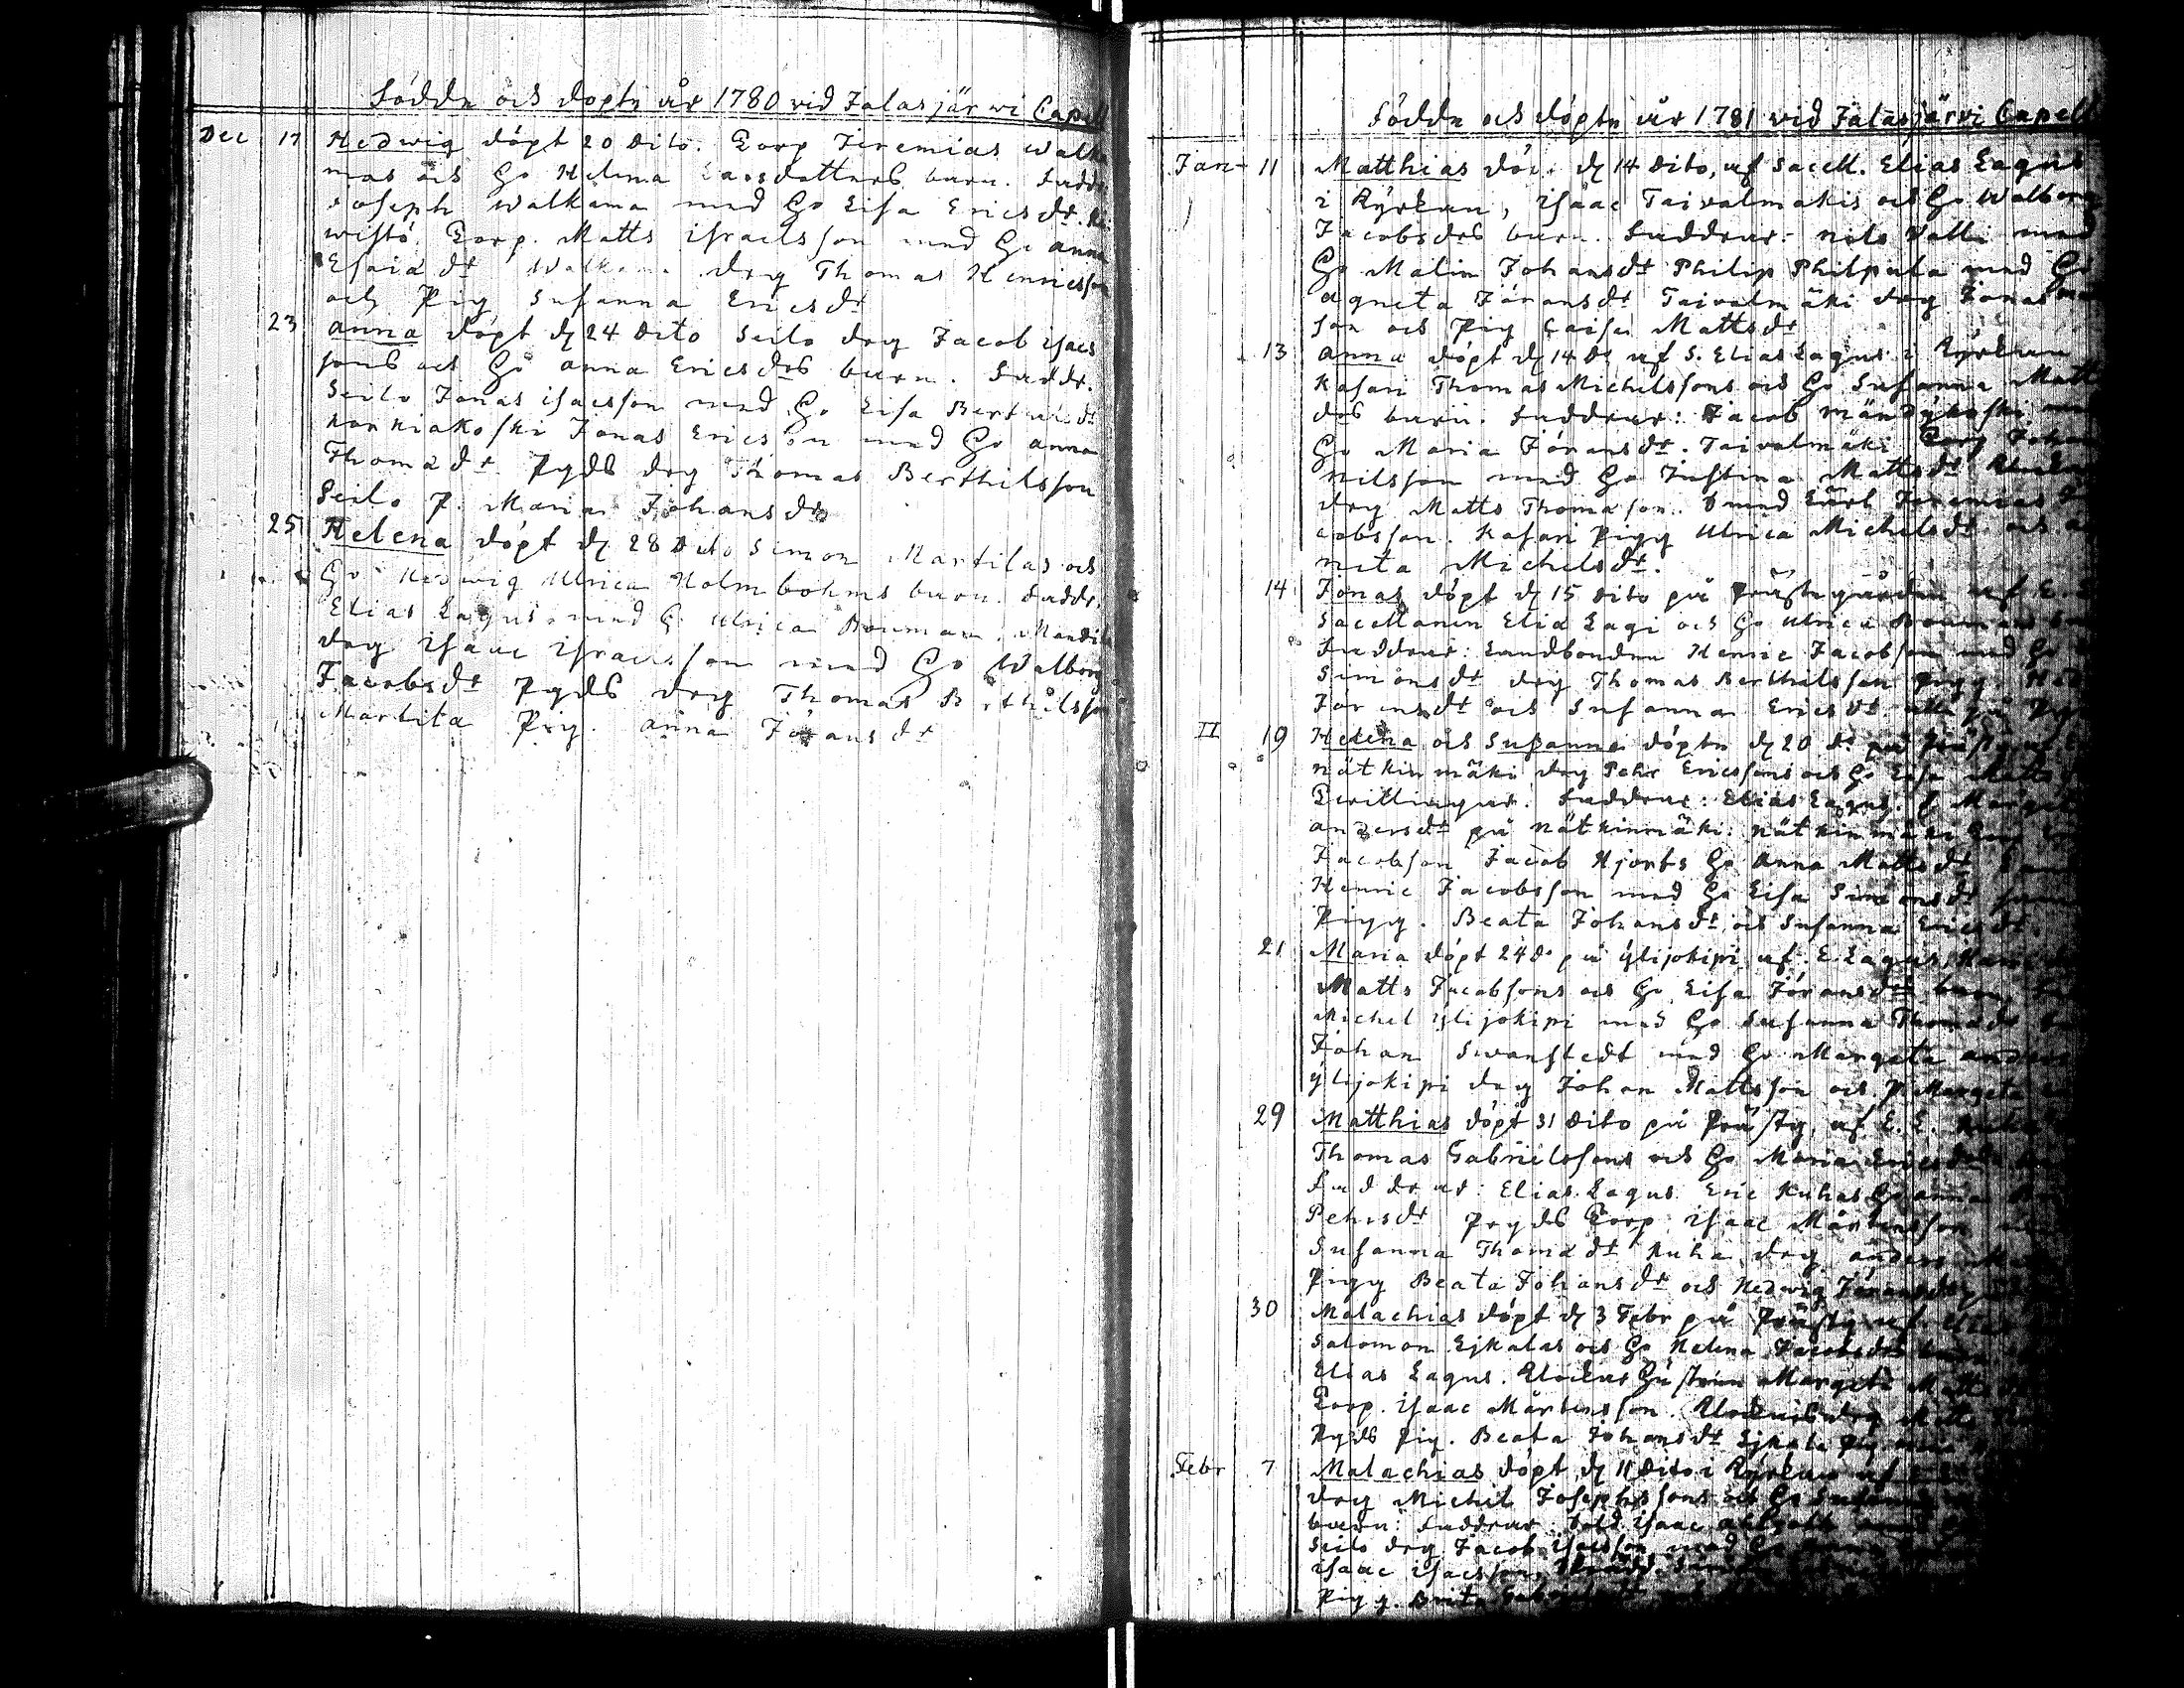 Födde och döpte år 1780 vid Jalasjärwi Capell
Dec 17 Hedwig döpt 20 Dito. Torp Jeremias Walka
mas och Hu Helena Larsdotters barn. Faddr.
Joseph Walkama med Hu Lisa Ericsdr.
wistö. Torp. Matts israelsson med Hu anna
Esaiædr Walkama drg Thomas Henricsson
och Pig Susanna Ericsdr
23 anna döpt d 24 Dito Seilo drg Jacob isacs
sons och Hu anna Ericsdrs barn. Faddr.
Seilo Jonas isacsson med Hu Lisa Berthilsdr
Konniakoski Jonas Ericsson med Hu anna
Thomædr Pgds drg Thomas Berthilsson
Seilo P. Maria Johansdr
25 Helena döpt d 28 Dito Simon Martilas och
Hu Hedwig Ulrica Holmbohms barn. Faddr.
Elias Lagus med H. Ulrica Bouman. Mandila
drg isaac israelsson med Hu Walborg
Jacobsdr Pgds drg Thomas Berthilsson
Martila Pig. anna Jöransdr
Födde och döpte år 1781 vid Jalasjärvi Capell
Jan 11 Matthias döp. d 14 Dito, af Sacell. Elias Lagus
i Kyrkan, isaac Taivalmäkis och Hu Walborg
Jacobsdrs barn. Faddrar: Nils Valli med
Hu Malin Johansdr Philip Philpula med Hu
agneta Jöransdr Taivalmäki drg Jonas
son och Pig Caisa Mattsdr
13 anna döpt d 14 do af S. Elias Lagus i Kyrkan
Kasari Thomas Michelssons och Hu Susanna Matts
drs barn. Faddrar: Jacob Mändykoski
Hu Maria Jöransdr. Taivalmäki Torp Johan
Nilsson med Hu Justina Mattsdr
drg Matts Thomason. Jeremias
cobsson. Kasari Pigg Ulrica Michelsdr och
neta Michelsdr.
14 Jonas döpt d 15 Dito på Prästegården af
Sacellanen Eliæ Lagi och Hu Ulrica Boumans
Faddrar: Landbonden Henric Jacobsson med Hu
Simonsdr drg Thomas Berthilsson Pigg.
Jöransdr och Susanna Ericsdr alla på
II 19 Helena och Susanna döpte d 20 do på Prästg af
Nätkinmäki drg Pehr Ericssons och Hu Lisa Matts
Tvillingar. Faddrar: Elias Lagus.
andersdr på Nätkinmäki. Nätkinmäki
Jacobson Jacob Hjorts Hu anna Mattsdr
Henric Jacobsson med Hu Lisa Simonsdr
Pigg. Beata Johansdr och Susanna Ericsdr
21 Maria döpt 24 do på Ylijokipi af E. Lagus,
Matts Jacobsons och Hu Lisa Jöransdrs barn,
Michel Ylijokipi med Hu Susanna Thomædr
Johan Swanstedt med Hu Margeta anders
Ylijokipi drg Johan Mattsson och P. Margeta
29 Matthias döpt 31 Dito på Prästg. af E. L.
Thomas Gabrielssons och Hu Maria Ericsdrs
Faddrar: Elias Lagus. Eric Kuhas Hu anna
Pehrsdr Prgds Torp isaac Mårtensson
Susanna Thomædr Kuha drg anders
Pigg Beata Johansdr och Hedwig Jöransdr
30 Malachias döpt d 3 Febr på Prästg af Elias
Salomon Ejkalas och Hu Helena Jacobsdrs barn
Elias Lagus. Klockar Hustrun Margeta Matts
Torp. isaac Mårtensson. Klockars drg Matts
Pgds Pig. Beata Johansdr Ejkala Pig
Febr 7 Malachias döpt d 11 Dito i Kyrkan af
drg Michel Josephssons och Hu Susanna
barn: Faddrar: isaac
Seilo drg Jacob isacsson med Hu anna
isaac isacsson,
Pigg. Brita